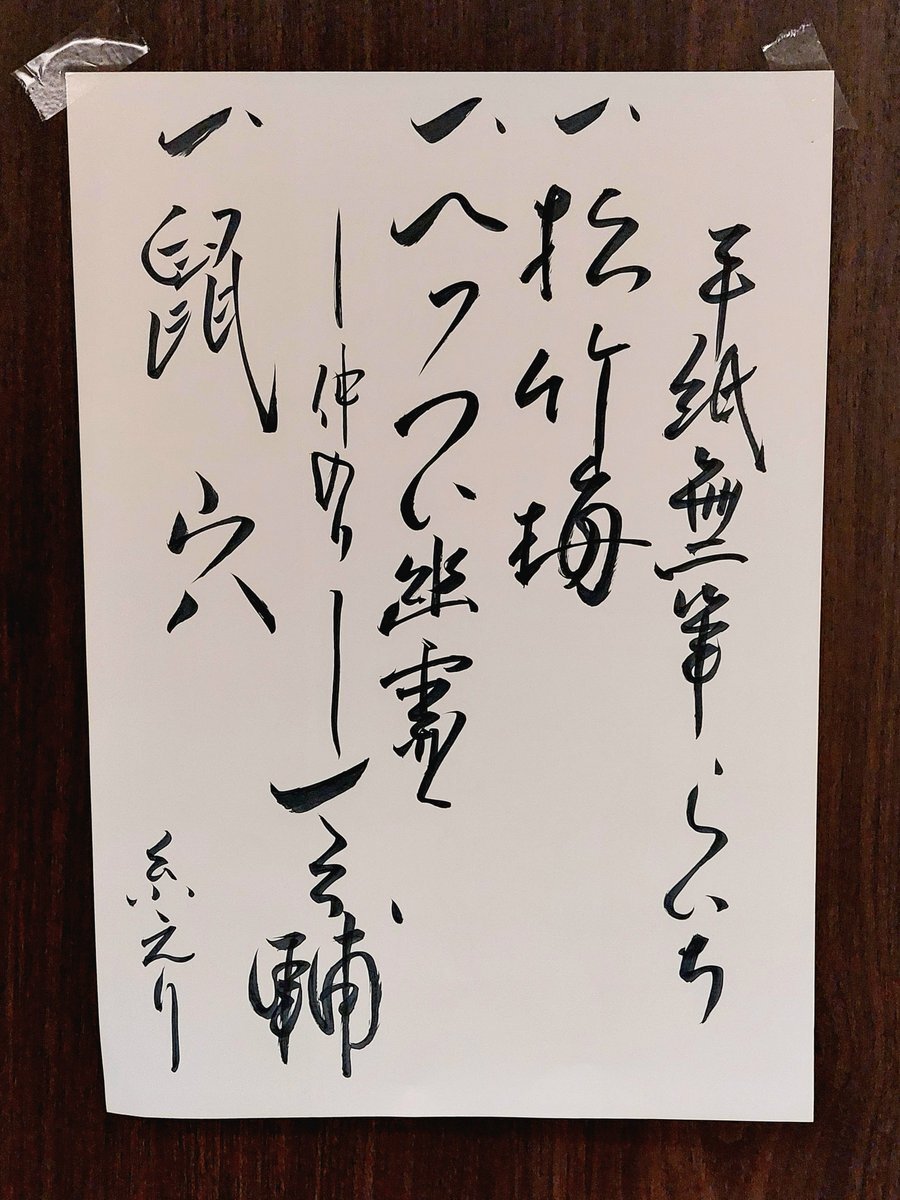 手紙無筆 らいち
一、松竹梅
一、へっつい幽霊
―仲入り―
一之輔
一、鼠穴
糸 えり